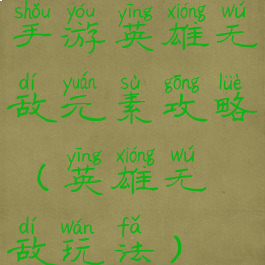 shǒu yóu yīng xióng wú
手游英雄无
dí yuán sù gōng lüè
敌元素攻略
yīng xióng wú
（英雄无
dí wán fǎ
敌玩法）